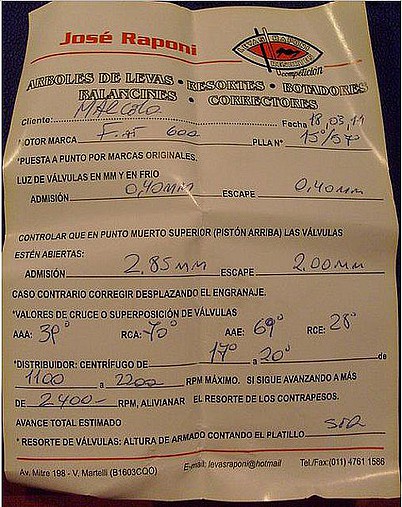 José Raponi
LEVAS RAPONI
competición
ARBOLES DE LEVAS • RESORTES • BOTADORES
BALANCINES • CORRECTORES
Cliente: MARCELO Fecha 18,03,11
OTOR MARCA Fiat 600 PLLA N° 15°/57°
*PUESTA A PUNTO POR MARCAS ORIGINALES.
LUZ DE VÁLVULAS EN MM Y EN FRIO
ADMISIÓN 0,40MM ESCAPE 0,40MM
CONTROLAR QUE EN PUNTO MUERTO SUPERIOR (PISTÓN ARRIBA) LAS VÁLVULAS
ESTÉN ABIERTAS:
ADMISIÓN 2,85MM ESCAPE 2.00MM
CASO CONTRARIO CORREGIR DESPLAZANDO EL ENGRANAJE.
*VALORES DE CRUCE O SUPERPOSICIÓN DE VÁLVULAS
AAA: 39° RCA: 70° AAE: 69° RCE: 28°
*DISTRIBUIDOR: CENTRÍFUGO DE 17° a 20° de
1100 a 2200 RPM MÁXIMO. SI SIGUE AVANZANDO A MÁS
DE 2400- RPM, ALIVIANAR EL RESORTE DE LOS CONTRAPESOS.
AVANCE TOTAL ESTIMADO
* RESORTE DE VÁLVULAS: ALTURA DE ARMADO CONTANDO EL PLATILLO STD
Av. Mitre 198 - V. Martelli (B1603CQO) E-mail: levasraponi@hotmail Tel./Fax:(011) 4761 1586